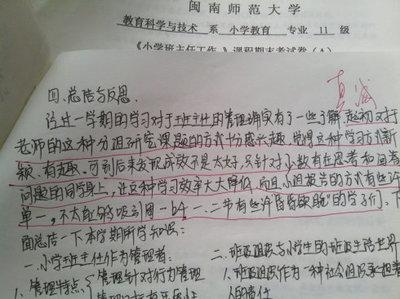 闽南师范大学
教育科学与技术 系 小学教育 专业 11 级
《小学班主任工作》课程期末考试卷（A）
真诚
四.总结与反思.
经过一学期的学习对于班主任的管理确实有了一些了解,起初对于
老师的这种分组研究课题的方式十分感兴趣,觉得这种学习方式新
颖、有趣,可到后来发现成效不是太好,只针对小数有在思考和问
问题的同学身上,让这种学习效率大大降低.而且小组报告的方式有些许
单一,不太能够吸引同一b4一.二节有些许昏昏欲睡"的学子们,下
面总结一下本学期所学知识:
一.小学班主任作为管理者:
二、班级组织与小学生的班级生活世界
1.管理特点 管理针对行为管理
1.班级组织作为一种社会组织承担着
人的责任